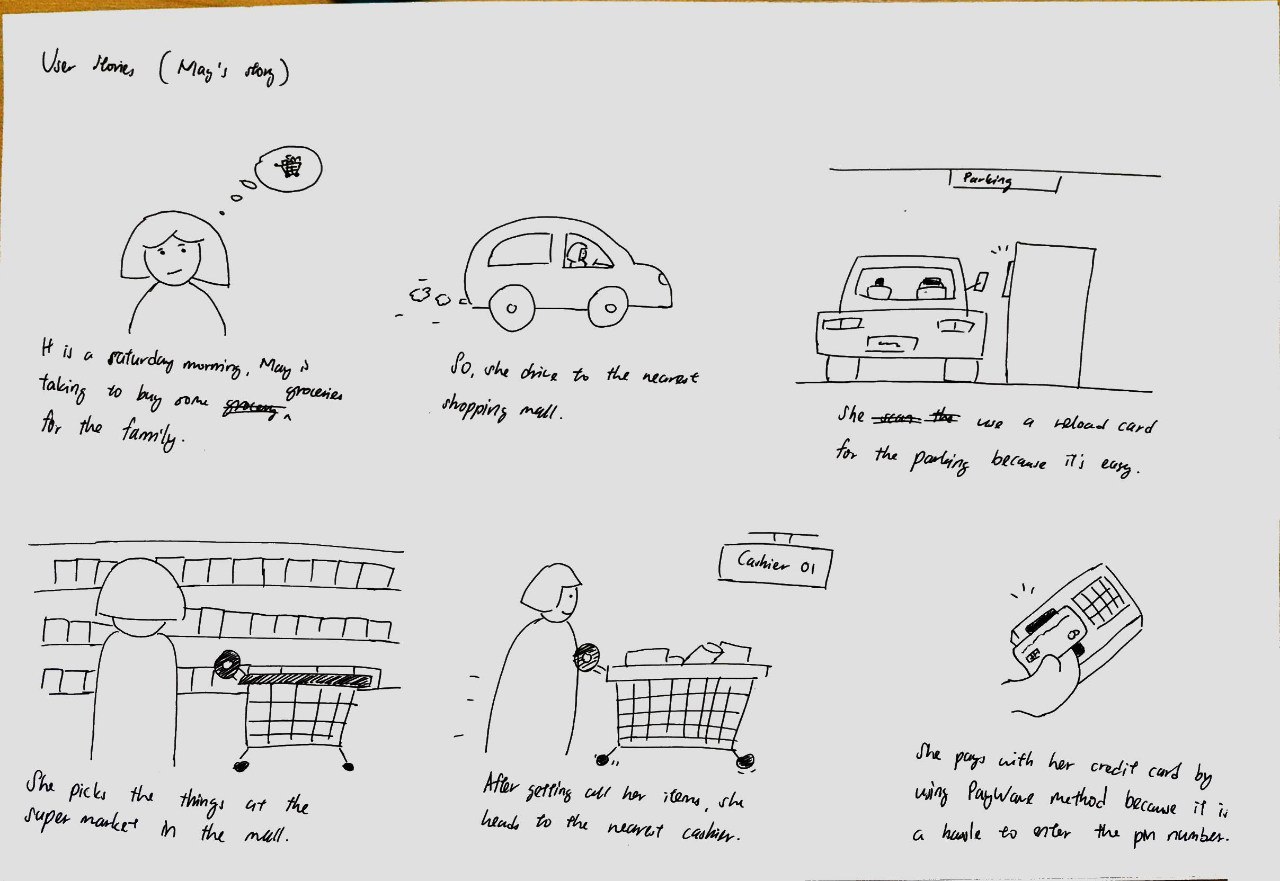 User stories (May's story)
It is a saturday morning, May is
taking to buy some grocery groceries
for the family.
So, she drive to the nearest
shopping mall.
Parking
She scan the use a reload card
for the parking because it's easy.
She picks the things at the
super market in the mall.
Cashier 01
After getting all her items, she
heads to the nearest cashier.
She pays with her credit card by
using PayWave method because it is
a hassle to enter the pin number.